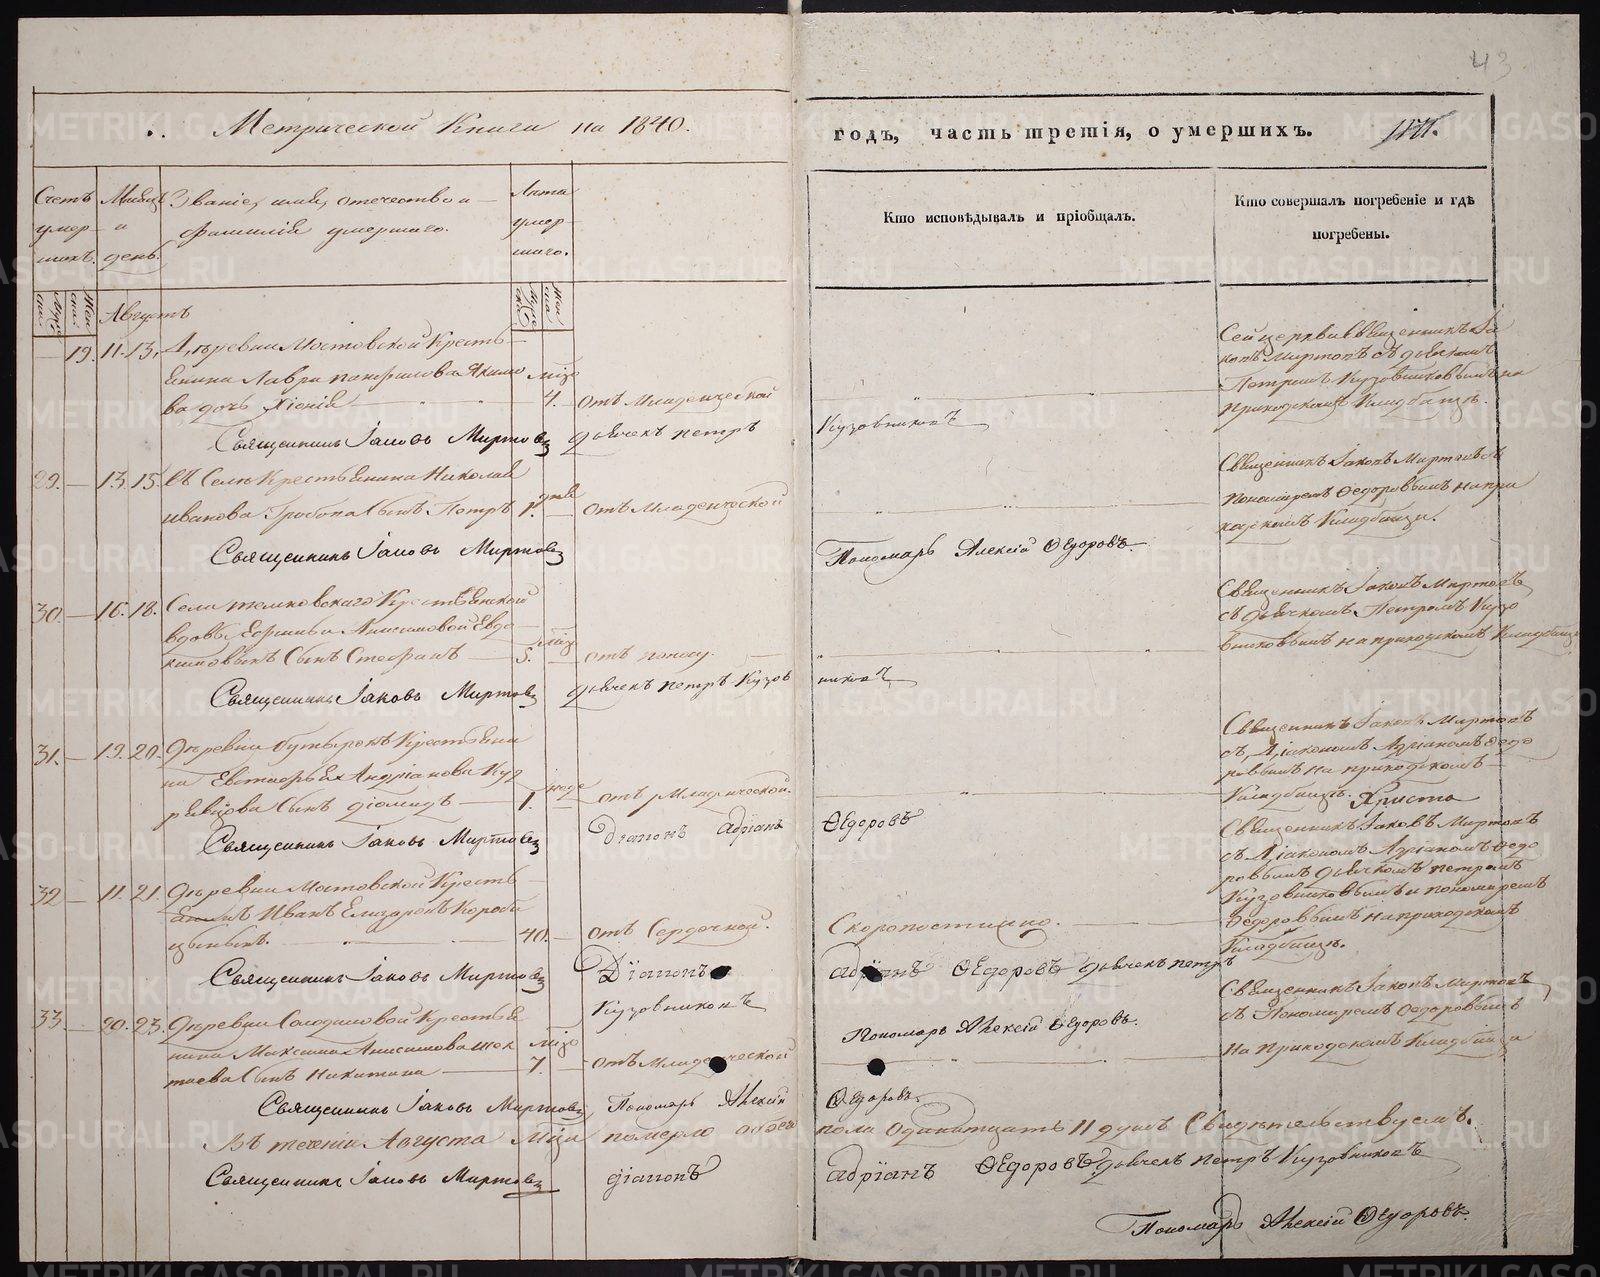 43
Метрической Книги на 1840.
годъ, часть третія, о умершихъ.
Счетъ умершихъ.
Мѣсяцъ и день.
Званіе, имя, отечество и фамилія умершаго.
Лѣта умершаго.
Кто исповѣдывалъ и пріобщалъ.
Кто совершалъ погребеніе и гдѣ погребены.
Мужескій
Женскій
Августъ
19. 11. 13. Деревни Мостовской Кресть-
янина Лавра Панфилова Якимо мѣс
ва дочь Ксенія 4. Отъ Младенческой
Сей церкви Священникъ Іа
ковъ Миртовъ съ дьячкомъ
Петромъ Кузовниковымъ на
приходскомъ Кладбищѣ.
Священникъ Іаковъ Миртовъ дьячекъ Петръ Кузовниковъ
29. 13. 15. Въ Селѣ Крестьянина Николая
Иванова сынъ Петръ 1. Отъ Младенческой
Священникъ Іаковъ Миртовъ съ
Пономаремъ Федоровымъ на при
ходскомъ Кладбищѣ.
Священникъ Іаковъ Миртовъ Пономарь Алексій Ѳедоровъ.
30. 16. 18. Села Крестьянской
вдовы Анисимовой Евдо
кимовыхъ Сынъ Стефанъ 5. мѣс отъ поносу.
Священникъ Іаковъ Миртовъ
съ дьячкомъ Петромъ Кузо
вниковымъ на приходскомъ Кладбищѣ
Священникъ Іаковъ Миртовъ дьячекъ Петръ Кузовниковъ
31. 19. 20. Деревни Бутырокъ Крестьяни
на Евстафья Андріанова Куд
рявцова Сынъ Діомидъ 1. отъ Младенческой.
Священникъ Іаковъ Миртовъ
съ Діакономъ Адріаномъ Ѳедо
ровымъ на приходскомъ
Кладбищѣ.
Священникъ Іаковъ Миртовъ Діаконъ Адріанъ Ѳедоровъ
32. 11. 21. Деревни Мостовской Кресть
янинъ Иванъ Елизаровъ Короби
цынъ. 40. отъ Сердечной. Скоропостижно.
Священникъ Іаковъ Миртовъ
съ Діакономъ Адріаномъ Ѳедо
ровымъ дьячкомъ Петромъ
Кузовниковымъ и пономаремъ
Ѳедоровымъ на приходскомъ
Кладбищѣ.
Священникъ Іаковъ Миртовъ Діаконъ Адріанъ Ѳедоровъ дьячекъ Петръ
Кузовниковъ Пономарь Алексій Ѳедоровъ.
33. 20. 23. Деревни Крестья
нина Максима Анисимова мѣс
Сынъ Никитина 7. отъ Младенческой
Священникъ Іаковъ Миртовъ
съ Пономаремъ Ѳедоровымъ
на Приходскомъ Кладбищѣ
Священникъ Іаковъ Миртовъ Пономарь Алексій Ѳедоровъ.
Въ теченіи Августа Мѣсяца померло обоего пола Одинатцать 11 душъ Свидѣтельствуемъ.
Священникъ Іаковъ Миртовъ Діаконъ Адріанъ Ѳедоровъ дьячекъ Петръ Кузовниковъ
Пономарь Алексій Ѳедоровъ.
METRIKI.GASO-URAL.RU